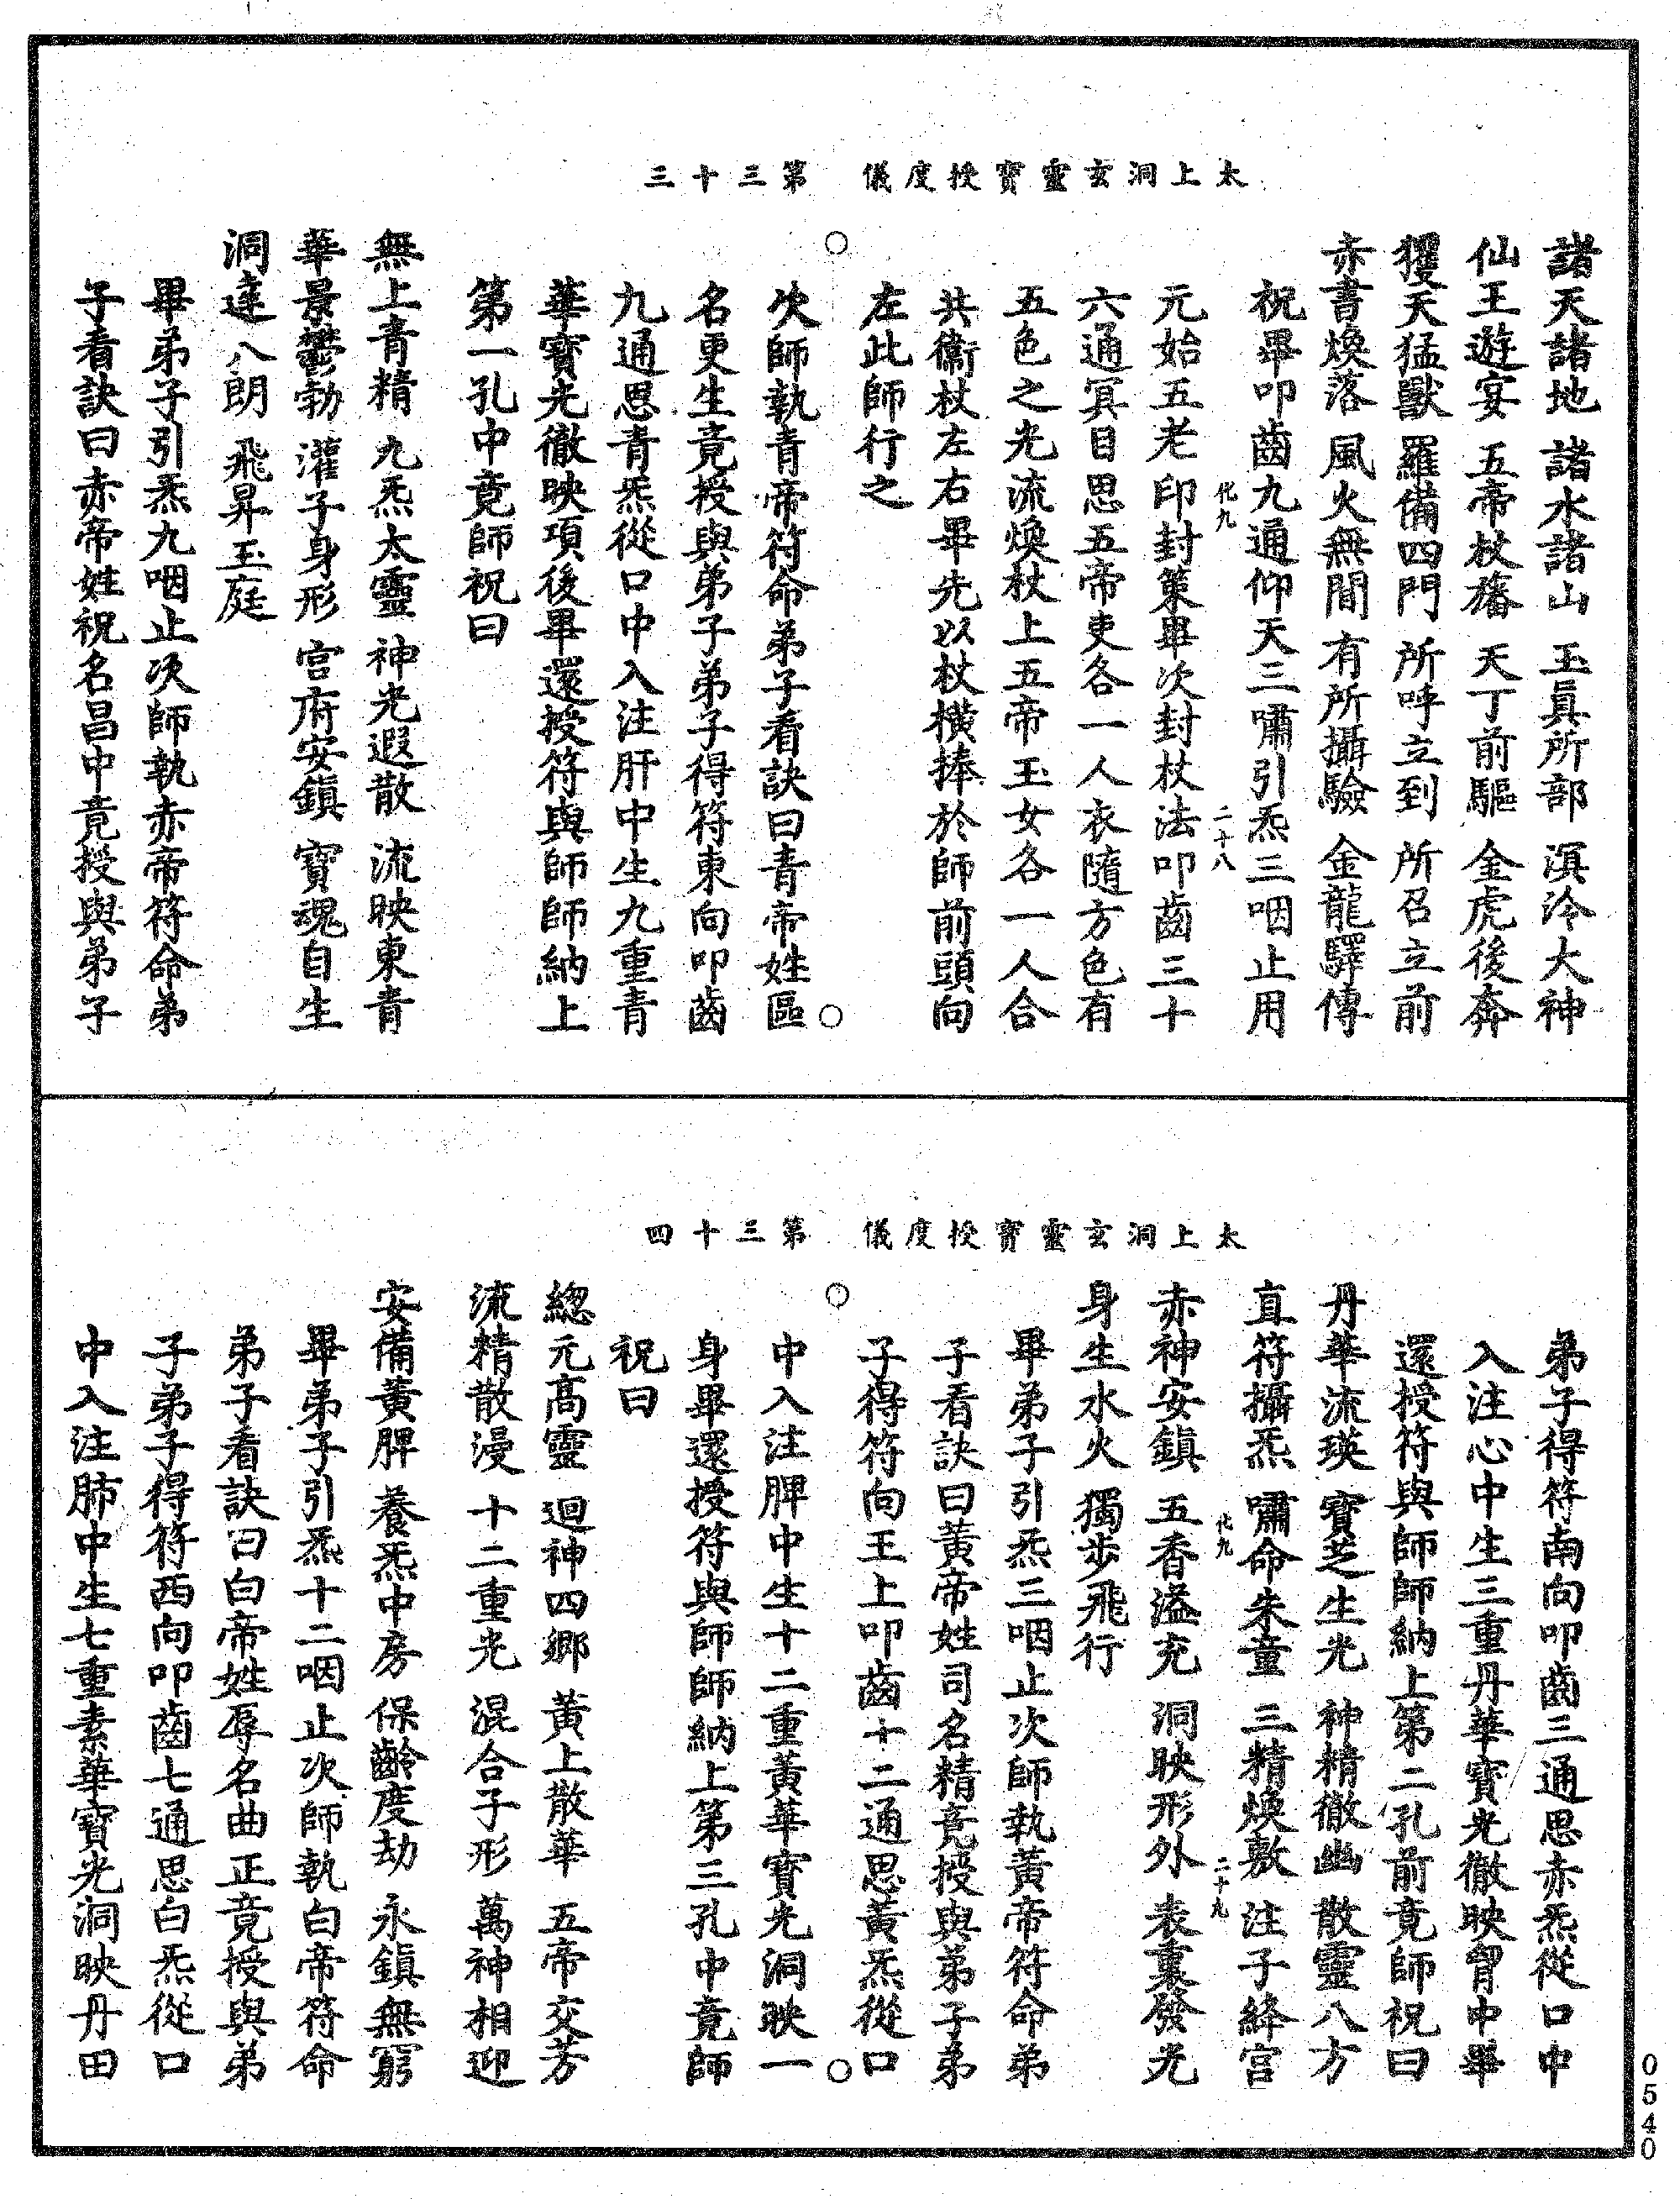 太上洞玄靈寶授度儀 第三十三
諸天諸地 諸水諸山 玉眞所部 溟泠大神
仙王遊宴 五帝杖旛 天丁前驅 金虎後奔
玃天猛獸 羅備四門 所呼立到 所召立前
赤書煥落 風火無間 有所攝驗 金龍驛傳
祝畢叩齒九通仰天三嘯引炁三咽止用
化九 二十八
元始五老印封策畢次封杖法叩齒三十
六通冥目思五帝吏各一人衣隨方色有
五色之光流煥杖上五帝玉女各一人合
共衞杖左右畢先以杖橫捧於師前頭向
左此師行之
次師執青帝符命弟子看訣曰青帝姓區
名更生竟授與弟子弟子得符東向叩齒
九通思青炁從口中入注肝中生九重青
華寶光徹映項後畢還授符與師師納上
第一孔中竟師祝曰
無上青精 九炁太靈 神光遐散 流映東青
華景鬱勃 灌子身形 宫府安鎮 寶魂自生
洞達八朗 飛昇玉庭
畢弟子引炁九咽止次師執赤帝符命弟
子看訣曰赤帝姓祝名昌中竟授與弟子
太上洞玄靈寶授度儀 第三十四
弟子得符南向叩齒三通思赤炁從口中
入注心中生三重丹華寶光徹映胷中畢
還授符與師師納上第二孔前竟師祝曰
丹華流瑛 寶芝生光 神精徹幽 散靈八方
直符攝炁 嘯命朱童 三精煥敷 注子絳宫
化九 二十九
赤神安鎮 五香溢充 洞映形外 表裏發光
身生水火 獨步飛行
畢弟子引炁三咽止次師執黃帝符命弟
子看訣曰黃帝姓司名精竟授與弟子弟
子得符向王上叩齒十二通思黃炁從口
中入注脾中生十二重黃華寶光洞映一
身畢還授符與師師納上第三孔中竟師
祝曰
緫元高靈 迴神四鄉 黃上散華 五帝交芳
流精散漫 十二重光 混合子形 萬神相迎
安備黃脾 養炁中房 保齡度劫 永鎮無窮
畢弟子引炁十二咽止次師執白帝符命
弟子看訣曰白帝姓辱名曲正竟授與弟
子弟子得符西向叩齒七通思白炁從口
中入注肺中生七重素華寶光洞映丹田
0540